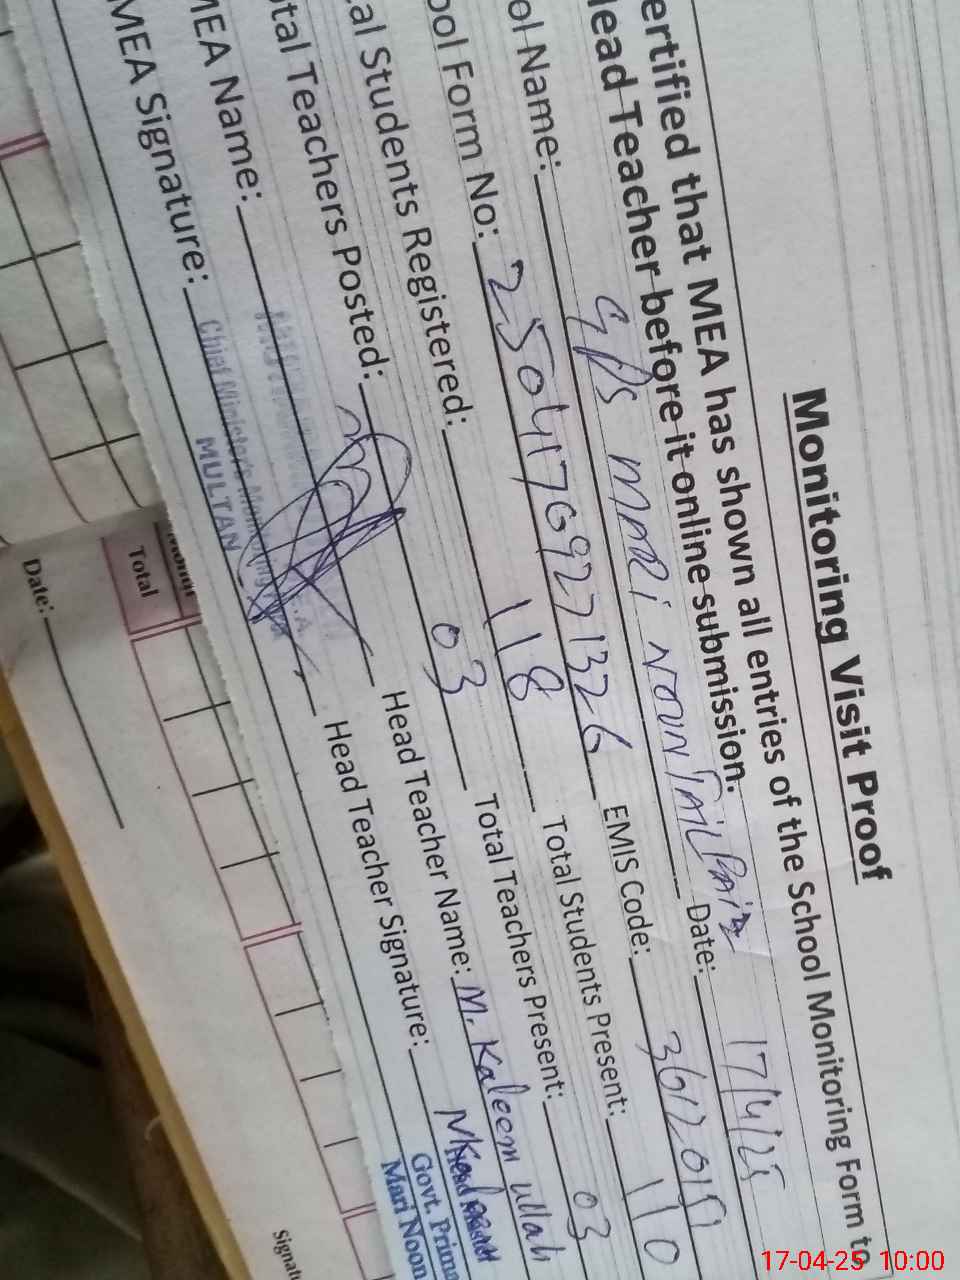 Monitoring Visit Proof
ertified that MEA has shown all entries of the School Monitoring Form to
lead Teacher before it online submission.
ol Name: GPS MARI NOUN Date: 17/4/25
ool Form No: 25041769271326 EMIS Code:
al Students Registered: 118 Total Students Present: 110
tal Teachers Posted: 03 Total Teachers Present: 03
MEA Name: Head Teacher Name: M. Kaleem ullah
MEA Signature: Head Teacher Signature:
Chief Minister's Monitoring
MULTAN
Govt. Prima
Mari Noon
Total
Date:
Signatu
17-04-25 10:00